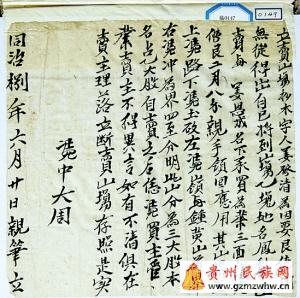 立賣山場杉木字人姜啓清為因要艮使用
無從得出自己將到山場乙塊地名鳳
賣与姜 名下承買為業三面
價艮二月八分親手領回應用其山
上憑路下憑玉政左憑嶺与鍾 山
右憑冲為界四至分明此山分為三大股本
名占乙大股自賣之后憑買主管
業賣主不得異言如有不清俱在
賣主理落立斷賣山場存照是實
憑中大周
同治捌年六月廿日親筆立
0147
0149
贵州民族网
www.gzmzwhw.cn